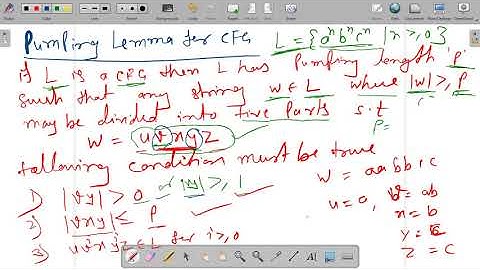 Pumping Lemma for CFG L = {aⁿbⁿcⁿ | n>,0}
if L is a CFG then L has Pumping length 'P'
such that any string w∈L where |w|>,P
may be divided into five parts s.t
P=
W = uvxyz
following condition must be true
1) |vy| > 0 or |vy| >, 1
2) |vxy| ≤ P
3) uvⁱxyⁱz∈L for i>,0
w = aabbcc
u = a, v = ab
x = b
y = c
z = c